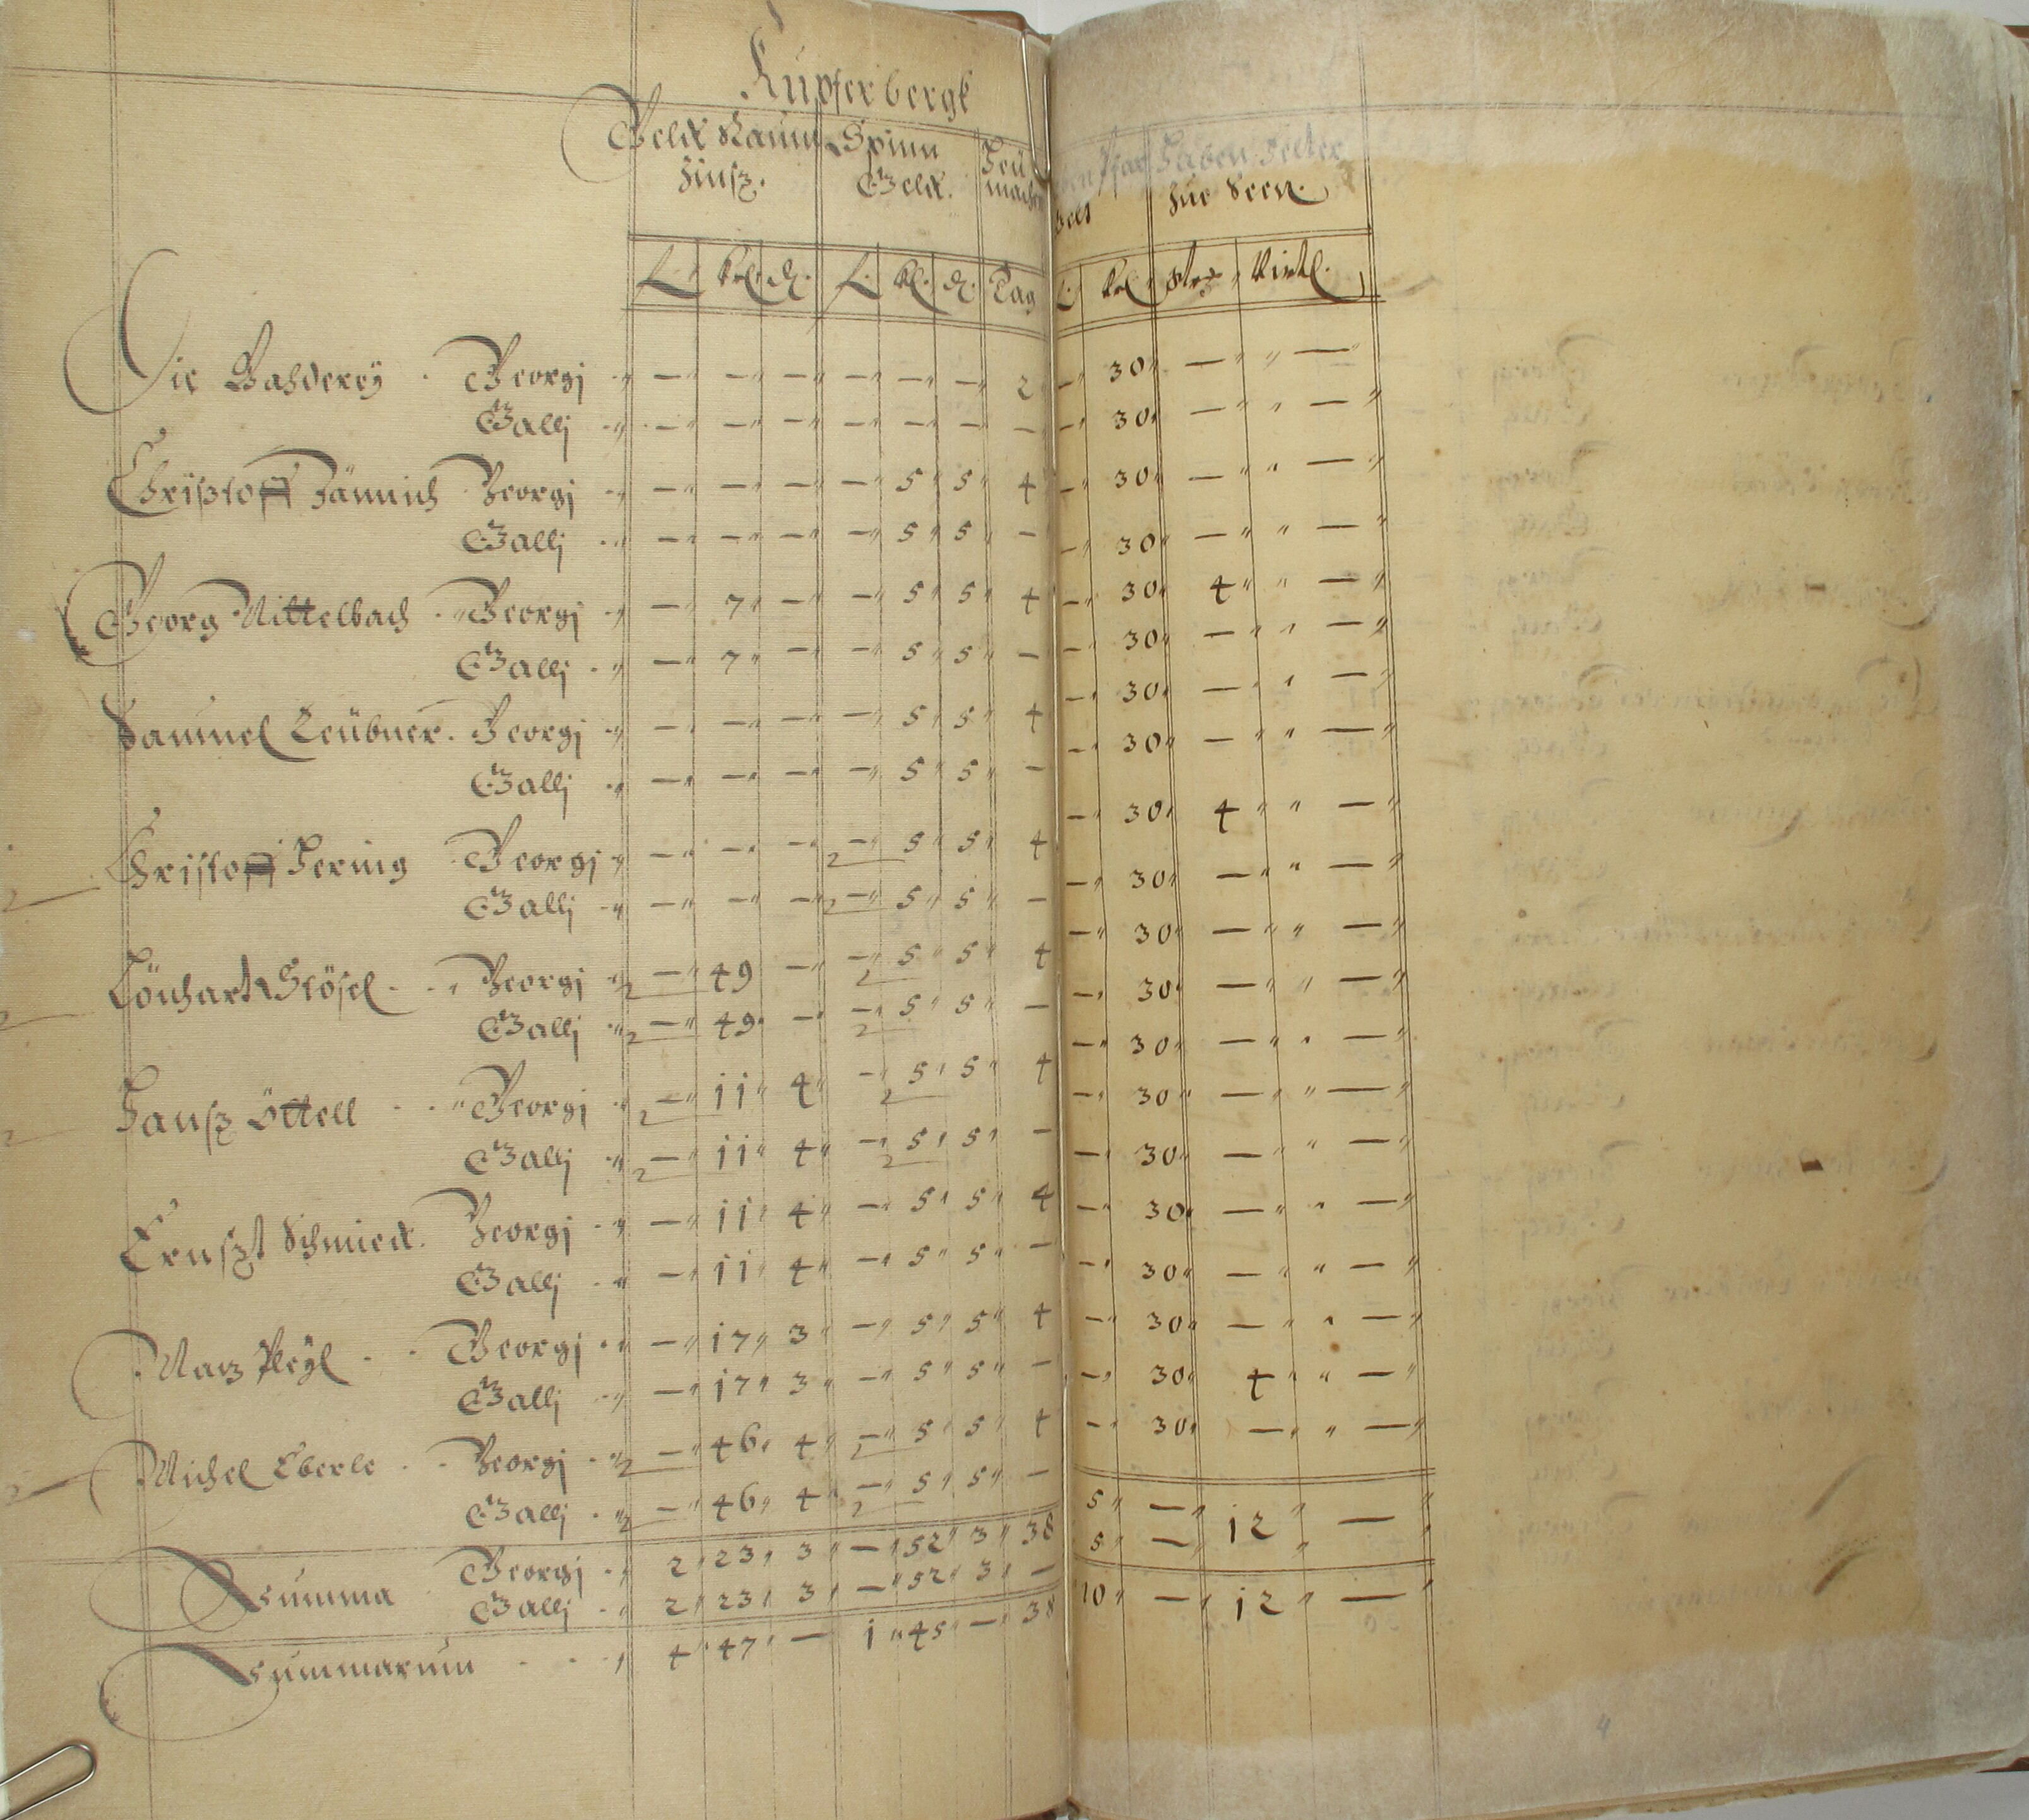 Kupferbergk
Feldt Raum Spinn Heu
Zinß. Geldt. machen Pfar Haben Felder
Geld Zue Seen.
fl. kr. d. fl. kr. d. Tag fl. kr. Str. Virtl.
Die Baderey . Georgj „ —„ —„ —„ —„ —„ —„ 2 —„ 30„ —„ „ —„
Gallj „ —„ —„ —„ —„ —„ — — —„ 30„ —„ „ —„
Christoff Jännich Georgj „ —„ —„ —„ —„ 5„ 5„ 4 —„ 30„ —„ „ —„
Gallj „ —„ —„ —„ —„ 5„ 5„ — —„ 30„ —„ „ —„
Georg Mittelbach . Georgj „ —„ 7„ —„ —„ 5„ 5„ 4 —„ 30„ 4„ „ —„
Gallj . „ —„ 7„ —„ —„ 5„ 5„ — —„ 30„ —„ „ —„
Samuel Leübner. Georgj „ —„ —„ —„ —„ 5„ 5„ 4 —„ 30„ —„ „ —„
Gallj „ —„ —„ —„ —„ 5„ 5„ — —„ 30„ —„ „ —„
2 Christoff Hering Georgj „ —„ —„ —„ 2 —„ 5„ 5„ 4 —„ 30„ 4„ „ —„
Gallj „ —„ —„ —„ 2 —„ 5„ 5„ — —„ 30„ —„ „ —„
2 Lönhart Stösel . . Georgj „ 2 —„ 49 —„ 2 —„ 5„ 5„ 4 —„ 30„ —„ „ —„
Gallj „ 2 —„ 49 —„ 2 —„ 5„ 5„ — —„ 30„ —„ „ —„
2 Hanß Öttell . . Georgj „ 2 —„ 11„ 4„ 2 —„ 5„ 5„ 4 —„ 30„ —„ „ —„
Gallj „ 2 —„ 11„ 4„ 2 —„ 5„ 5„ — —„ 30„ —„ „ —„
Ernßt Schmiedt. Georgj . „ —„ 11„ 4„ —„ 5„ 5„ 4 —„ 30„ —„ „ —„
Gallj . „ —„ 11„ 4„ —„ 5„ 5„ — —„ 30„ —„ „ —„
Matz Pleÿl . . Georgj . „ —„ 17„ 3„ —„ 5„ 5„ 4 —„ 30„ —„ „ —„
Gallj . „ —„ 17„ 3„ —„ 5„ 5„ — —„ 30„ —„ „ —„
2 Michel Eberle . . Georgj . „ 2 —„ 46„ 4„ 2 —„ 5„ 5„ 4 —„ 30„ 4„ „ —„
Gallj . „ 2 —„ 46„ 4„ 2 —„ 5„ 5„ — —„ 30„ —„ „ —„
Summa Georgj . „ 2„ 23„ 3„ —„ 52„ 3„ 38 5„ —„ 12„ —„
Gallj . „ 2„ 23„ 3„ —„ 52„ 3„ — 5„ —„
Summarum . . . „ 4„ 47„ — 1„ 45„ —„ 38 10„ —„ 12„ —„
4